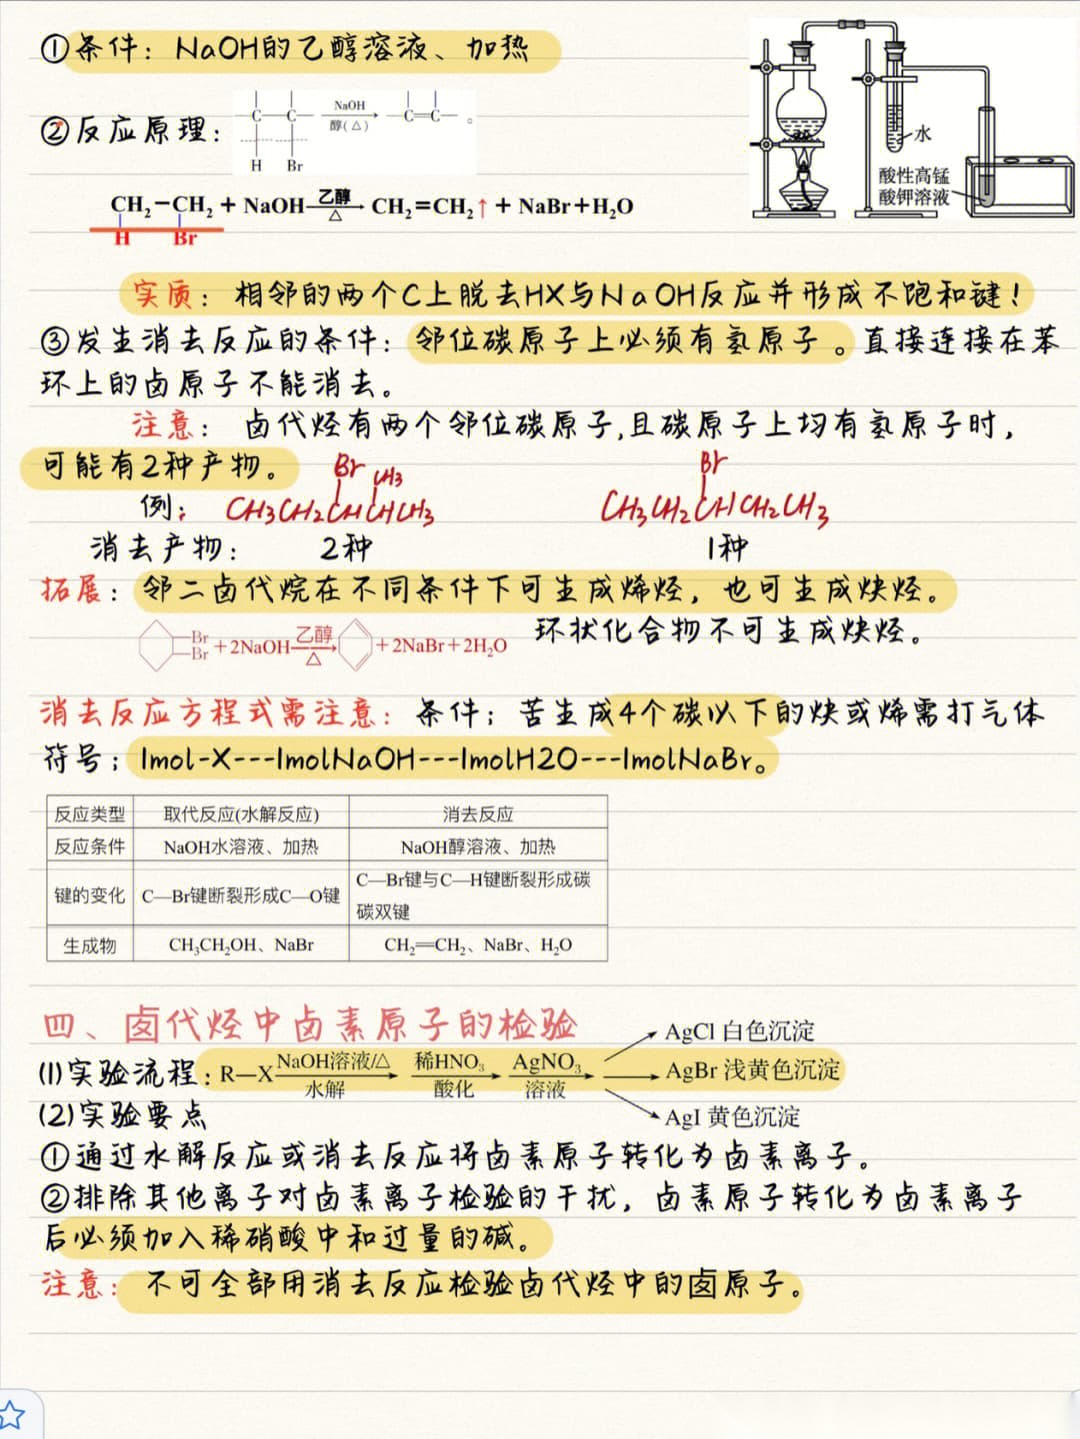 ①条件：NaOH的乙醇溶液、加热
②反应原理：
NaOH
C—C— 醇(△) —C=C—。
H Br
CH₂—CH₂ + NaOH 乙醇 △ CH₂=CH₂↑ + NaBr+H₂O
H Br
水
酸性高锰
酸钾溶液
实质：相邻的两个C上脱去HX与NaOH反应并形成不饱和键！
③发生消去反应的条件：邻位碳原子上必须有氢原子。直接连接在苯
环上的卤原子不能消去。
注意：卤代烃有两个邻位碳原子,且碳原子上均有氢原子时,
可能有2种产物。
Br CH₃
Br
例：CH₃CH₂CHCHCH₃
CH₃CH₂CHCH₂CH₃
消去产物：2种
1种
拓展：邻二卤代烷在不同条件下可生成烯烃，也可生成炔烃。
Br
Br +2NaOH 乙醇 △ +2NaBr+2H₂O
环状化合物不可生成炔烃。
消去反应方程式需注意：条件；苦生成4个碳以下的炔或烯需打气体
符号；1mol-X---1molNaOH---1molH2O---1molNaBr。
反应类型 取代反应(水解反应) 消去反应
反应条件 NaOH水溶液、加热 NaOH醇溶液、加热
键的变化 C—Br键断裂形成C—O键 C—Br键与C—H键断裂形成碳
碳双键
生成物 CH₃CH₂OH、NaBr CH₂=CH₂、NaBr、H₂O
四、卤代烃中卤素原子的检验
(1)实验流程：R—X NaOH溶液/△ 水解 稀HNO₃ 酸化 AgNO₃ 溶液
AgCl 白色沉淀
AgBr 浅黄色沉淀
AgI 黄色沉淀
(2)实验要点
①通过水解反应或消去反应将卤素原子转化为卤素离子。
②排除其他离子对卤素离子检验的干扰，卤素原子转化为卤素离子
后必须加入稀硝酸中和过量的碱。
注意：不可全部用消去反应检验卤代烃中的卤原子。